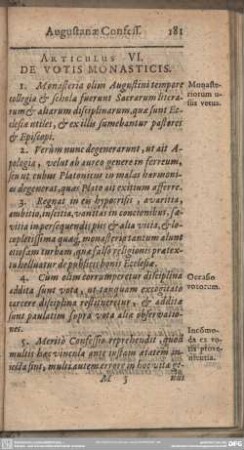 Augustanæ Confess. 181
ARTICULUS VI.
DE VOTIS MONASTICIS.
1. Monasteria olim Augustini tempore
collegia & schola fuerunt Sacrarum litera-
rum & aliarum disciplinarum, quæ sunt Ec-
clesiæ utiles, & ex illis sumebantur pastores
& Episcopi.
Monaste-
riorum u-
sus vetus.
2. Verùm nunc degenerarunt, ut ait A-
pologia, velut ab aureo genere in ferreum,
seu ut cubus Platonicus in malas harmoni-
as degenerat, quas Plato ait exitium afferre.
3. Regnat in eis hypocrisis, avaritia,
ambitio, inscitia, vanitas in concionibus, sæ-
vitia
& alia vitia, & lo-
cupletissima quæq, monasteria tantum alunt
otiosam turbam, quæ falso religionis prætex-
tu helluatur de publicis bonis Ecclesiæ.
4. Cum olim corrumperetur disciplina
addita sunt vota, ut tanquam excogitato
carcere disciplina restitueretur, & addita
sunt paulatim supra vota alia observatio-
nes.
Occasio
votorum.
5. Meritò Confessio reprehendit, quod
multis hæc vincula ante justam ætatem in-
jecta sint, multi autem errore in hoc vitæ ge-
Incōmo-
da ex vo-
tis prove-
nientia.
M 3